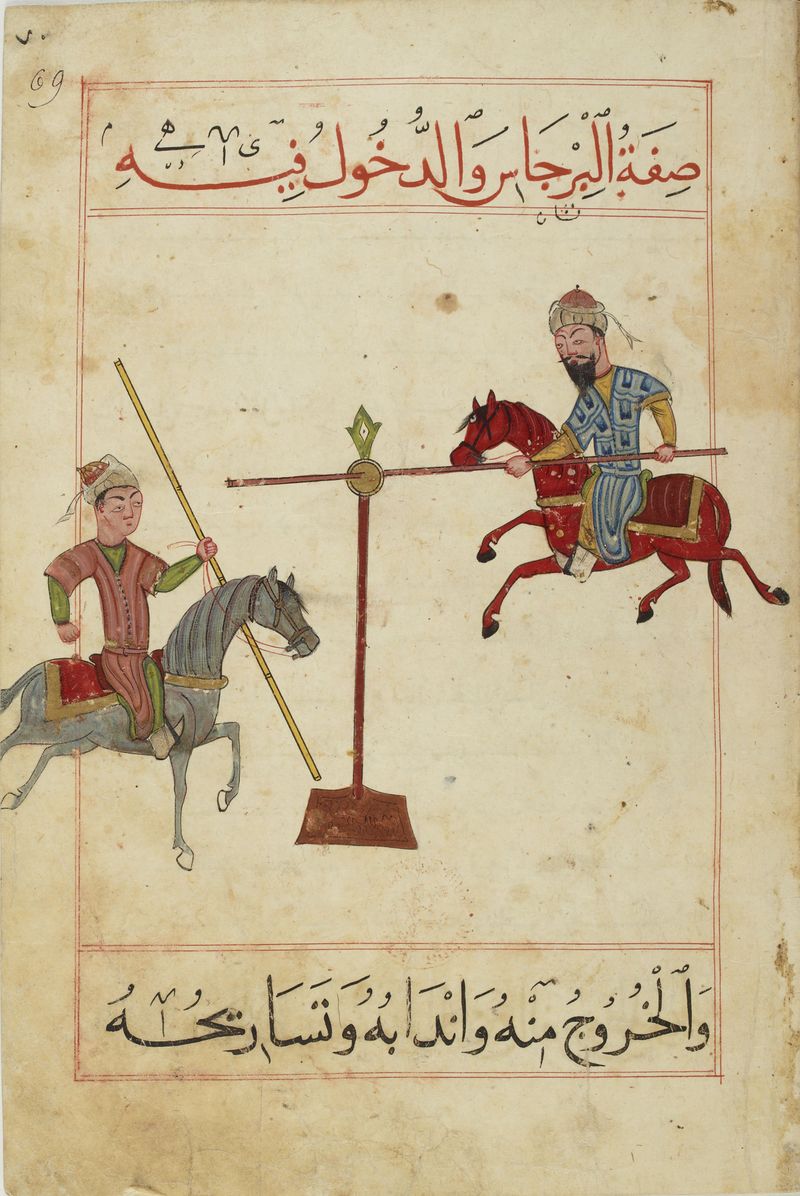 69
صِفَةُ الْبِرْجَاسِ وَالدُّخُولُ فِيهِ
وَالْخُرُوجُ مِنْهُ وَانْدَابُهُ وَتَسَارِيحُهُ